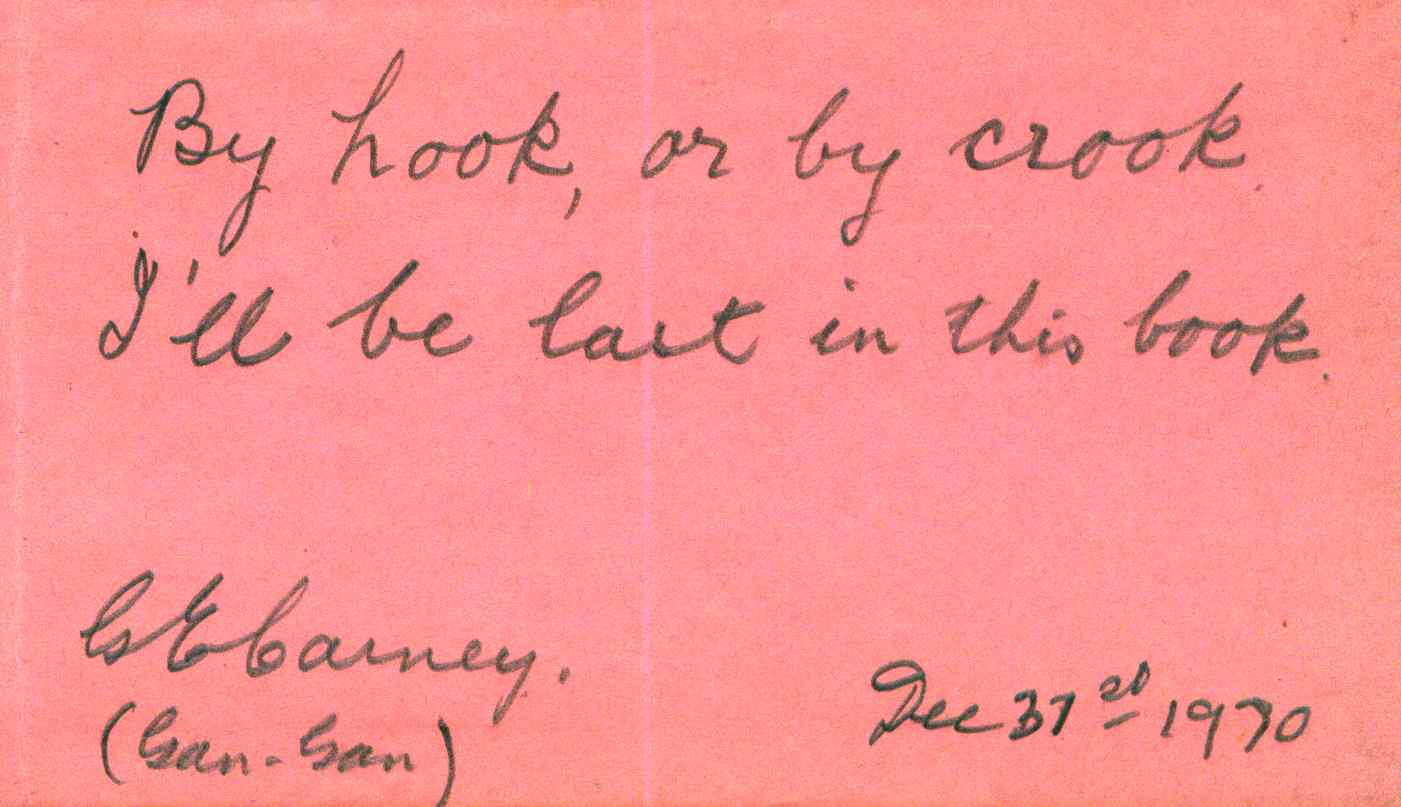 By hook, or by crook.
I'll be last in this book.
G E Carney.
(Gan-Gan)
Dec 31st 1970